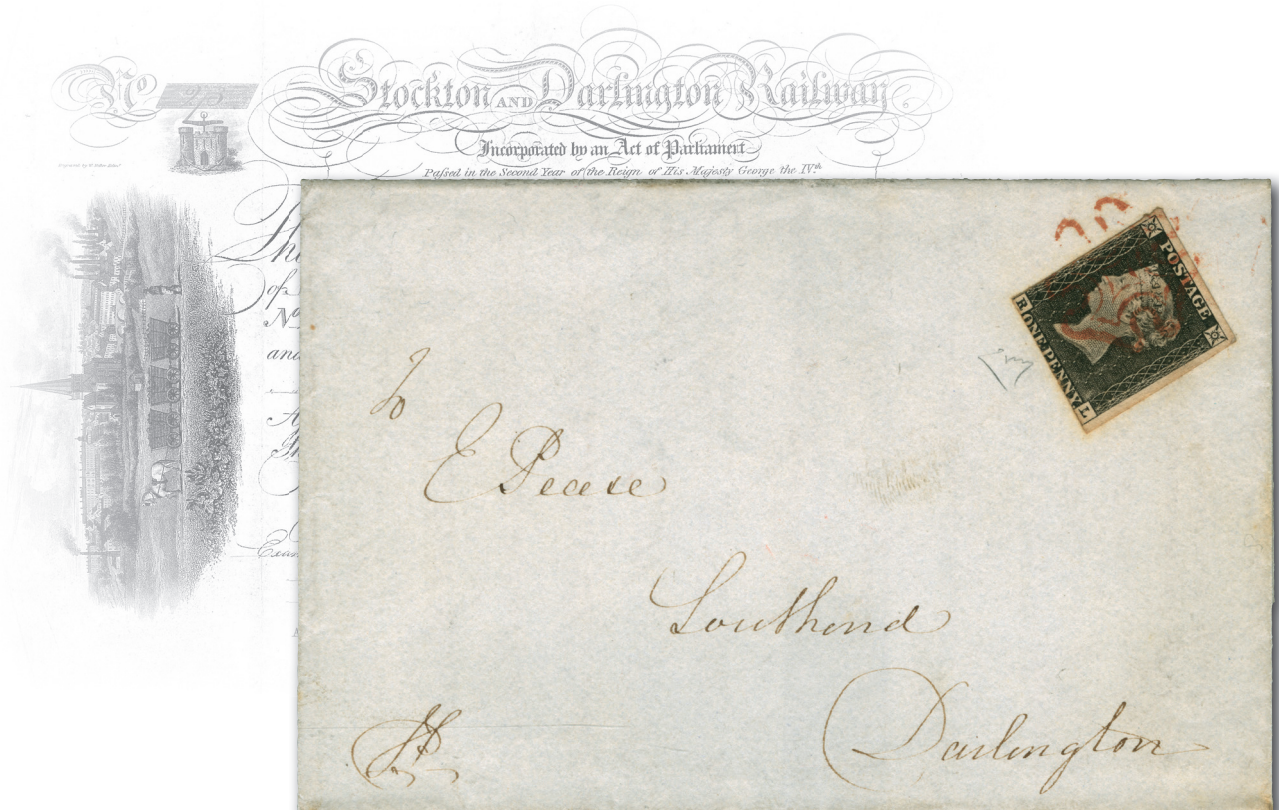 No 23
Stockton AND Darlington Railway
Incorporated by an Act of Parliament
Passed in the Second Year of the Reign of His Majesty George the IV.th
of
No
and
POSTAGE
R ONE PENNY L
To
E Pease
Southend
Darlington